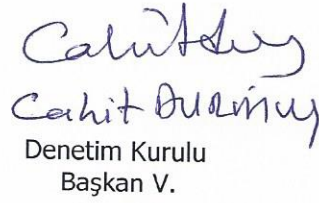 Cahit Durmuş
Denetim Kurulu
Başkan V.